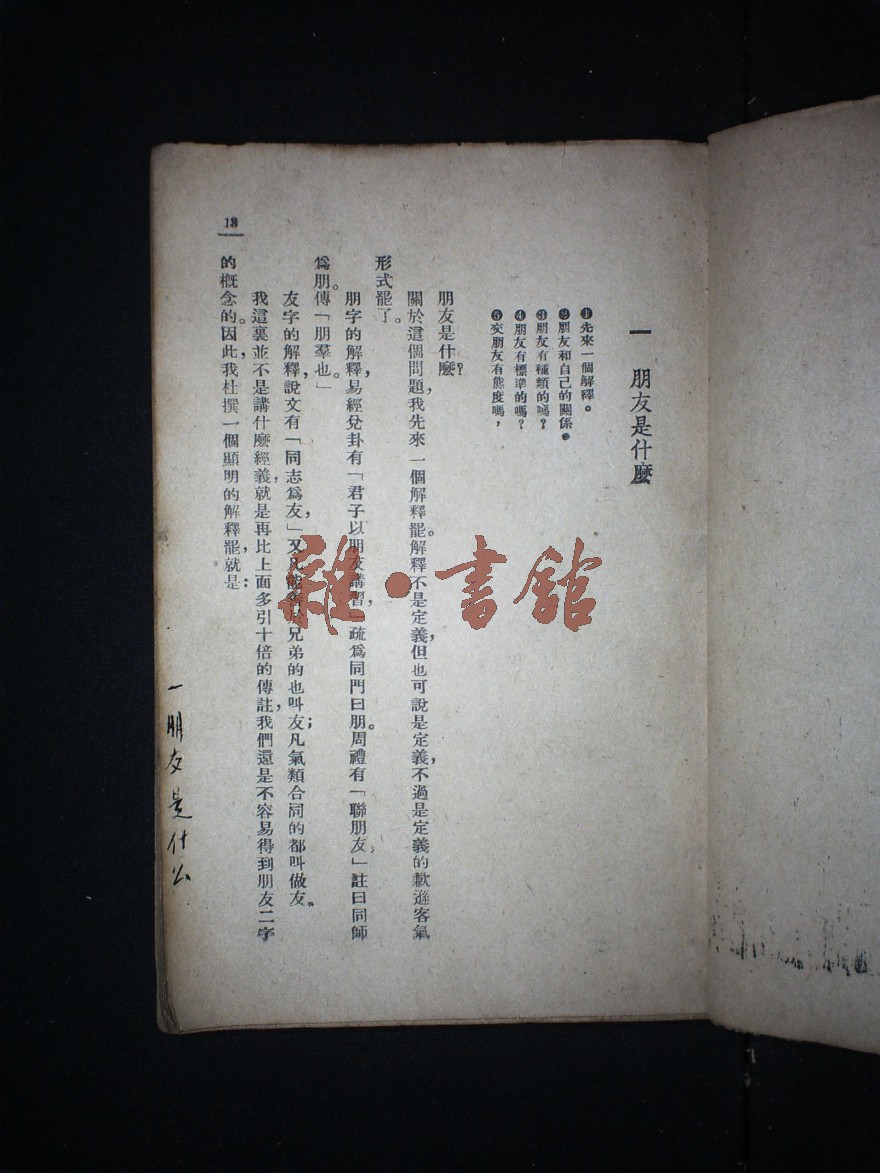 一　朋友是什麼
❶先來一個解釋。
❷朋友和自己的關係。
❸朋友有種類的嗎？
❹朋友有標準的嗎？
❺交朋友有態度嗎，
朋友是什麼？
關於這個問題，我先來一個解釋罷。解釋不是定義，但也可說是定義，不過是定義的歉遜客氣
形式罷了。
朋字的解釋，易經兌卦有「君子以朋友講習，」疏爲同門曰朋。周禮有「聯朋友，」註曰同師
爲朋。傳「朋羣也」
友字的解釋，說文有「同志爲友，」又凡能善於兄弟的也叫友；凡氣類合同的都叫做友。
我這裏並不是講什麼經義，就是再比上面多引十倍的傳註，我們還是不容易得到朋友二字
的概念的。因此，我杜撰一個顯明的解釋罷，就是：
18
一朋友是什么
雜·書館